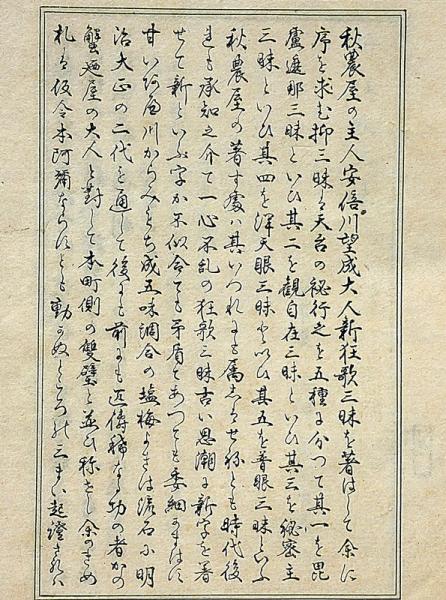 秋農屋の主人安倍川望成大人新狂歌三昧を著はして余に
序を求む抑三昧は天台の秘行之を五種に分つて其一を毘
盧遮那三昧といひ其二を観自在三昧といひ其三を秘密主
三昧といひ其四を渾天眼三昧といひ其五を普眼三昧といふ
秋農屋の著す處は其いつれにも属しさせねとも時代後
れも承知之介て一心不乱の狂歌三昧古い思潮に新字を著
せて新といふ字か不似合ても矛盾てあつても委細かまはす
甘いあへ川からみもち成五味調合の塩梅よきは流石に明
治大正の二代を通して後にも前にも匹儔稀なる功の者かの
蟹廼屋の大人と対して本町側の雙璧と並ひ称さし余のきめ
札は仮令本阿彌ならすとも動かぬところの三まい起證されは